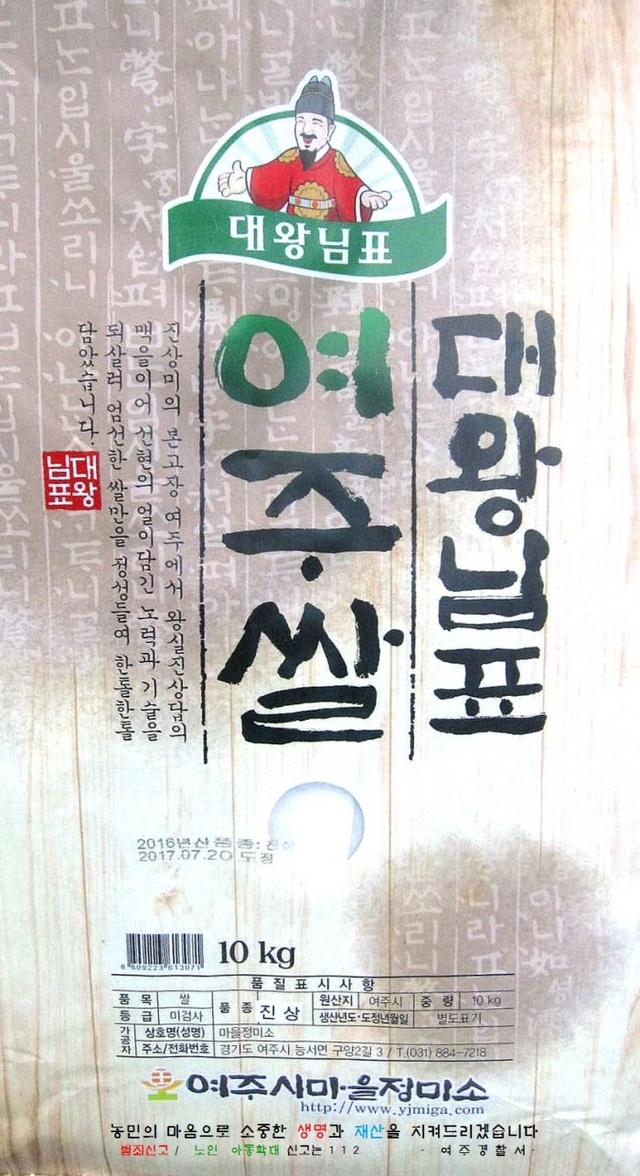 대왕님표
대왕님표
여주쌀
진상미의 본고장 여주에서 왕실진상답의
맥을이어 선현의 얼이담긴 노력과 기술을
되살려 엄선한 쌀만을 정성들여 한톨한톨
담았습니다.
대왕
님표
2016년산 품종: 진상
2017.07.20 도정
8 809223 613071
10 kg
품질표시사항
품 목 쌀 품 종 진상 원산지 여주시 중 량 10 kg
등 급 미검사 생산년도·도정년월일 별도표기
가공자 상호명(성명) 마을정미소
주소/전화번호 경기도 여주시 능서면 구양2길 3 / T.(031) 884-7218
여주시마을정미소
http://www.yjmiga.com/
농민의 마음으로 소중한 생명과 재산을 지켜드리겠습니다
범죄신고 / 노인 아동학대 신고는 112 - 여주경찰서 -